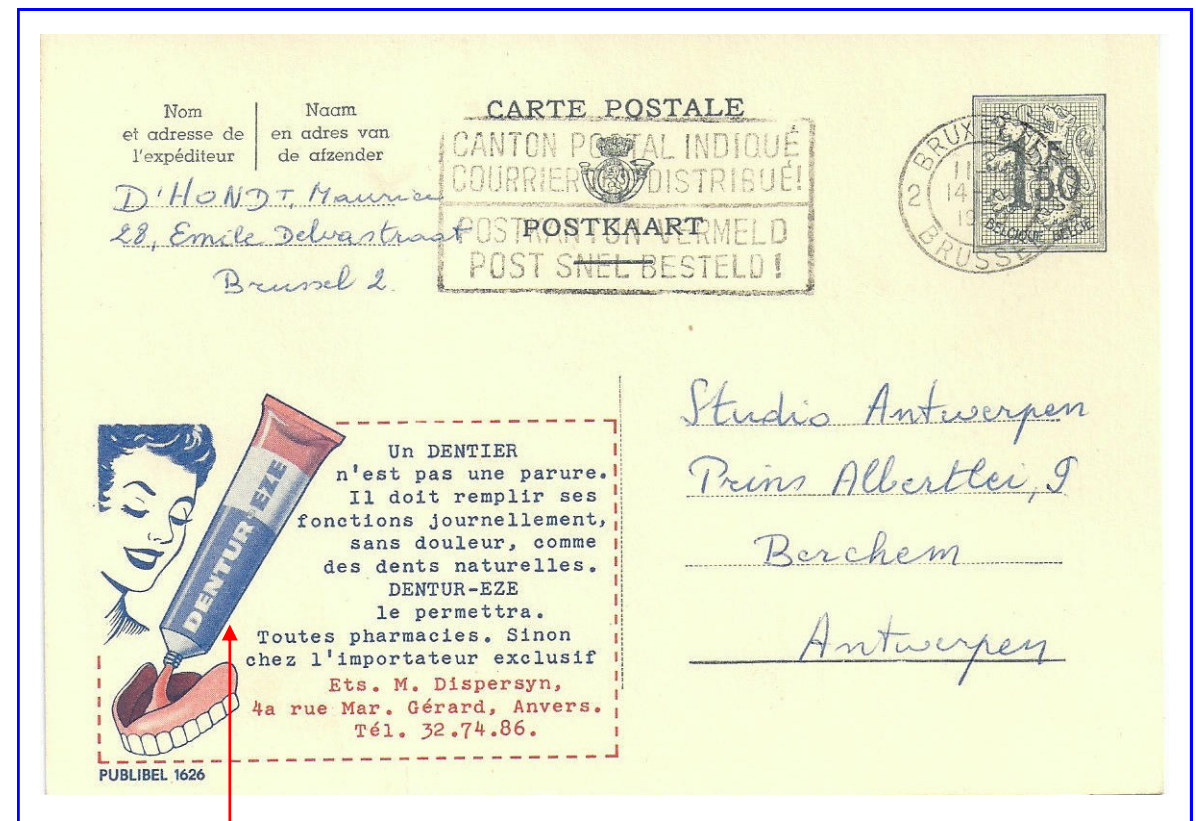 CARTE POSTALE
Nom
et adresse de
l'expéditeur
Naam
en adres van
de afzender
CANTON POSTAL INDIQUÉ
COURRIER DISTRIBUÉ!
POSTKAART
POSTKANTON VERMELD
POST SNEL BESTELD!
BRUXELLES
2
11
14
19
BRUSSEL
1F50
BELGIQUE BELGIË
D'HONDT, Maurice
28, Emile Delvastraat
Brussel 2.
Studio Antwerpen
Prins Albertlei, 9
Berchem
Antwerpen
DENTUR-EZE
Un DENTIER
n'est pas une parure.
Il doit remplir ses
fonctions journellement,
sans douleur, comme
des dents naturelles.
DENTUR-EZE
le permettra.
Toutes pharmacies. Sinon
chez l'importateur exclusif
Ets. M. Dispersyn,
4a rue Mar. Gérard, Anvers.
Tél. 32.74.86.
PUBLIBEL 1626